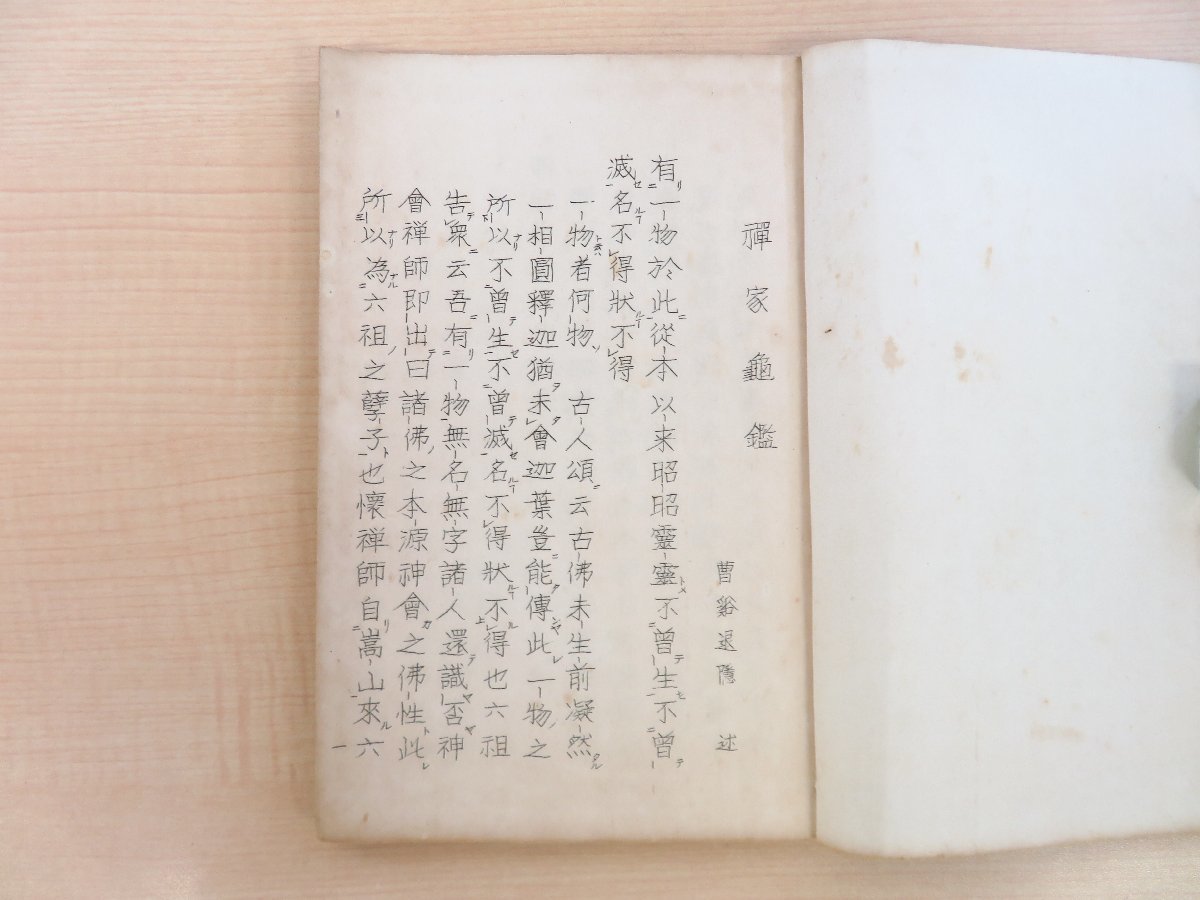 禪家龜鑑
曹谿退隱 述
有一物於此從本以来昭昭靈靈不曾生不曾
滅名不得狀不得
一物者何物 古人頌云古佛未生前凝然
一相圓釋迦猶未會迦葉豈能傳此一物之
所以不曾生不曾滅名不得狀不得也六祖
告衆云吾有一物無名無字諸人還識否神
會禅師即出曰諸佛之本源神會之佛性此
所以為六祖之孽子也懷禅師自嵩山來六
一